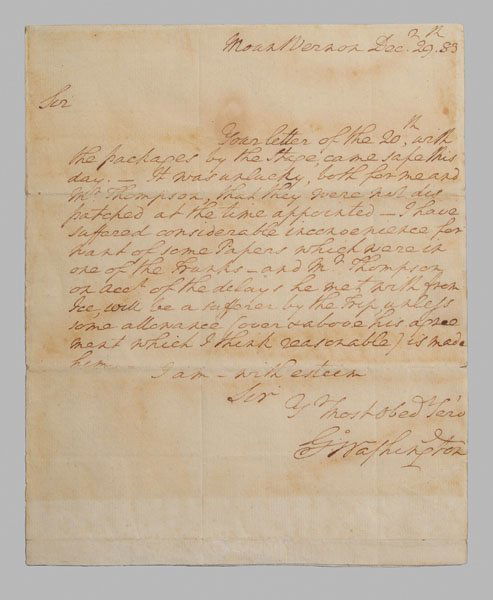 Mount Vernon Decr. 29th. 83
Sir
Your letter of the 20th, with
the packages by the Stage, came safe this
day. — It was unlucky, both for me and
Mr. Thompson, that they were not dis
patched at the time appointed — I have
suffered considerable inconvenience for
want of some Papers which were in
one of the Trunks — and Mr. Thompson
on acct. of the delays he met with from
Ice, will be a sufferer by the Trip, unless
some allowance (over & above his agree
ment which I think reasonable) is made
him.
I am — with esteem
Sir
Yr. Most Obedt. Servt.
Go: Washington